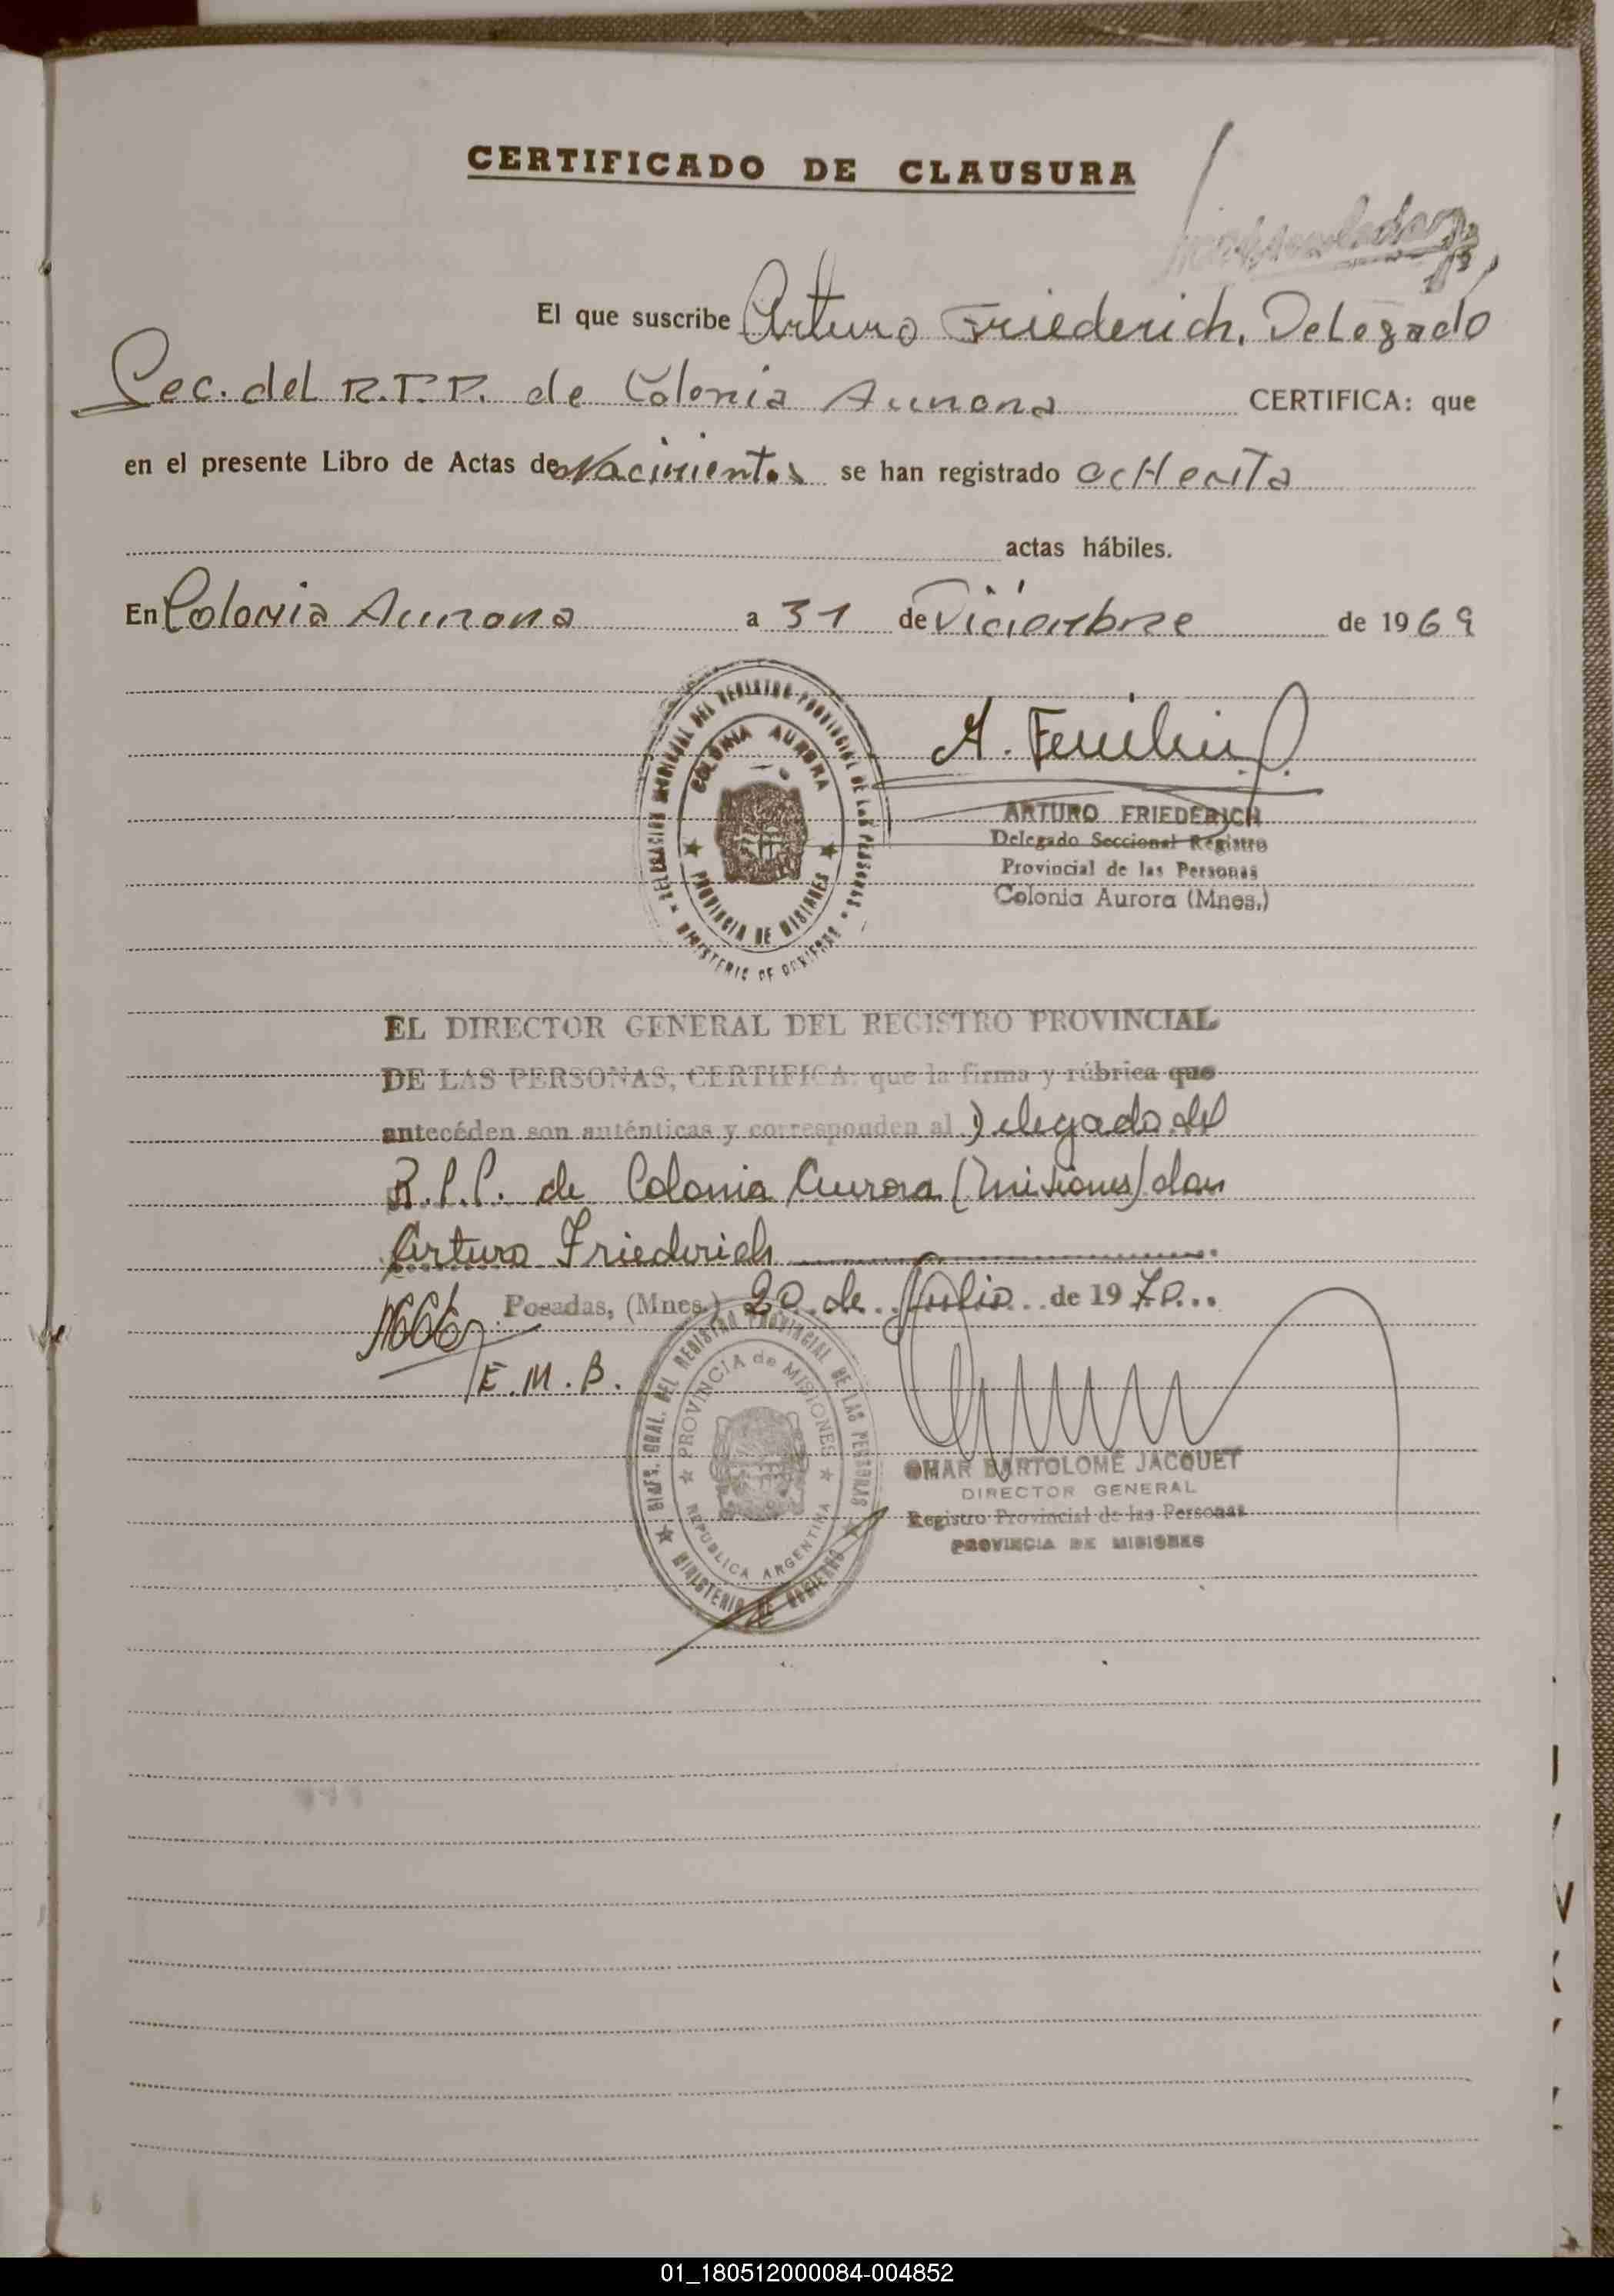 CERTIFICADO DE CLAUSURA
El que suscribe Arturo Friederich, Delegado
Sec. del R.P.P. de Colonia Aurora CERTIFICA: que
en el presente Libro de Actas de Nacimientos se han registrado ocHenta
actas hábiles.
En Colonia Aurora a 31 de Diciembre de 1969
DELEGACION MUNICIPAL DEL REGISTRO PROVINCIAL DE LAS PERSONAS
COLONIA AURORA
PROVINCIA DE MISIONES
MINISTERIO DE GOBIERNO
ARTURO FRIEDERICH
Delegado Seccional Registro
Provincial de las Personas
Colonia Aurora (Mnes.)
EL DIRECTOR GENERAL DEL REGISTRO PROVINCIAL
DE LAS PERSONAS, CERTIFICA: que la firma y rúbrica que
antecéden son auténticas y corresponden al Delegado del
R.P.P. de Colonia Aurora (Misiones) don
Arturo Friederich
Posadas, (Mnes.) 20 de Julio de 1970
1666
E.M.B.
GRAL. DEL REGISTRO PROVINCIAL DE LAS PERSONAS
PROVINCIA de MISIONES
REPUBLICA ARGENTINA
MINISTERIO DE GOBIERNO
OMAR BARTOLOMÉ JACQUET
DIRECTOR GENERAL
Registro Provincial de las Personas
PROVINCIA DE MISIONES
01_180512000084-004852